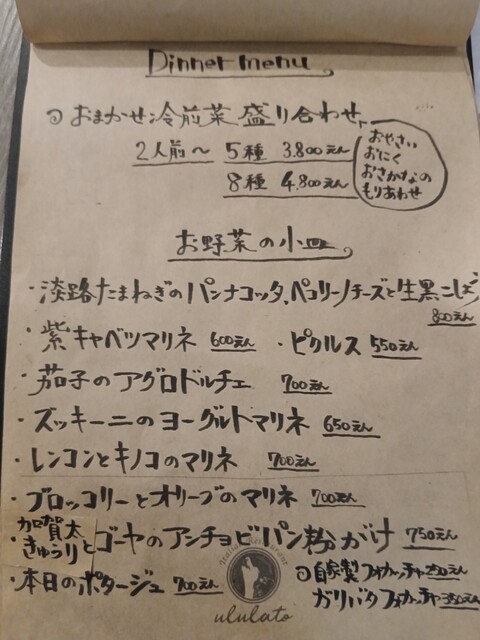 Dinner menu
おまかせ冷前菜 盛り合わせ
2人前〜 5種 3.800えん
8種 4.800えん
おやさい
おにく
おさかなの
もりあわせ
お野菜の小皿
・淡路たまねぎのパンナコッタ、ペコリーノチーズと生黒こしょう
800えん
・紫キャベツマリネ 600えん ・ピクルス 550えん
・茄子のアグロドルチェ 700えん
・ズッキーニのヨーグルトマリネ 650えん
・レンコンとキノコのマリネ 700えん
・ブロッコリーとオリーブのマリネ 700えん
・加賀太きゅうりとゴーヤのアンチョビパン粉がけ 750えん
・本日のポタージュ 700えん
自家製フォカッチャ 250えん
ガリバタフォカッチャ 350えん
ululato